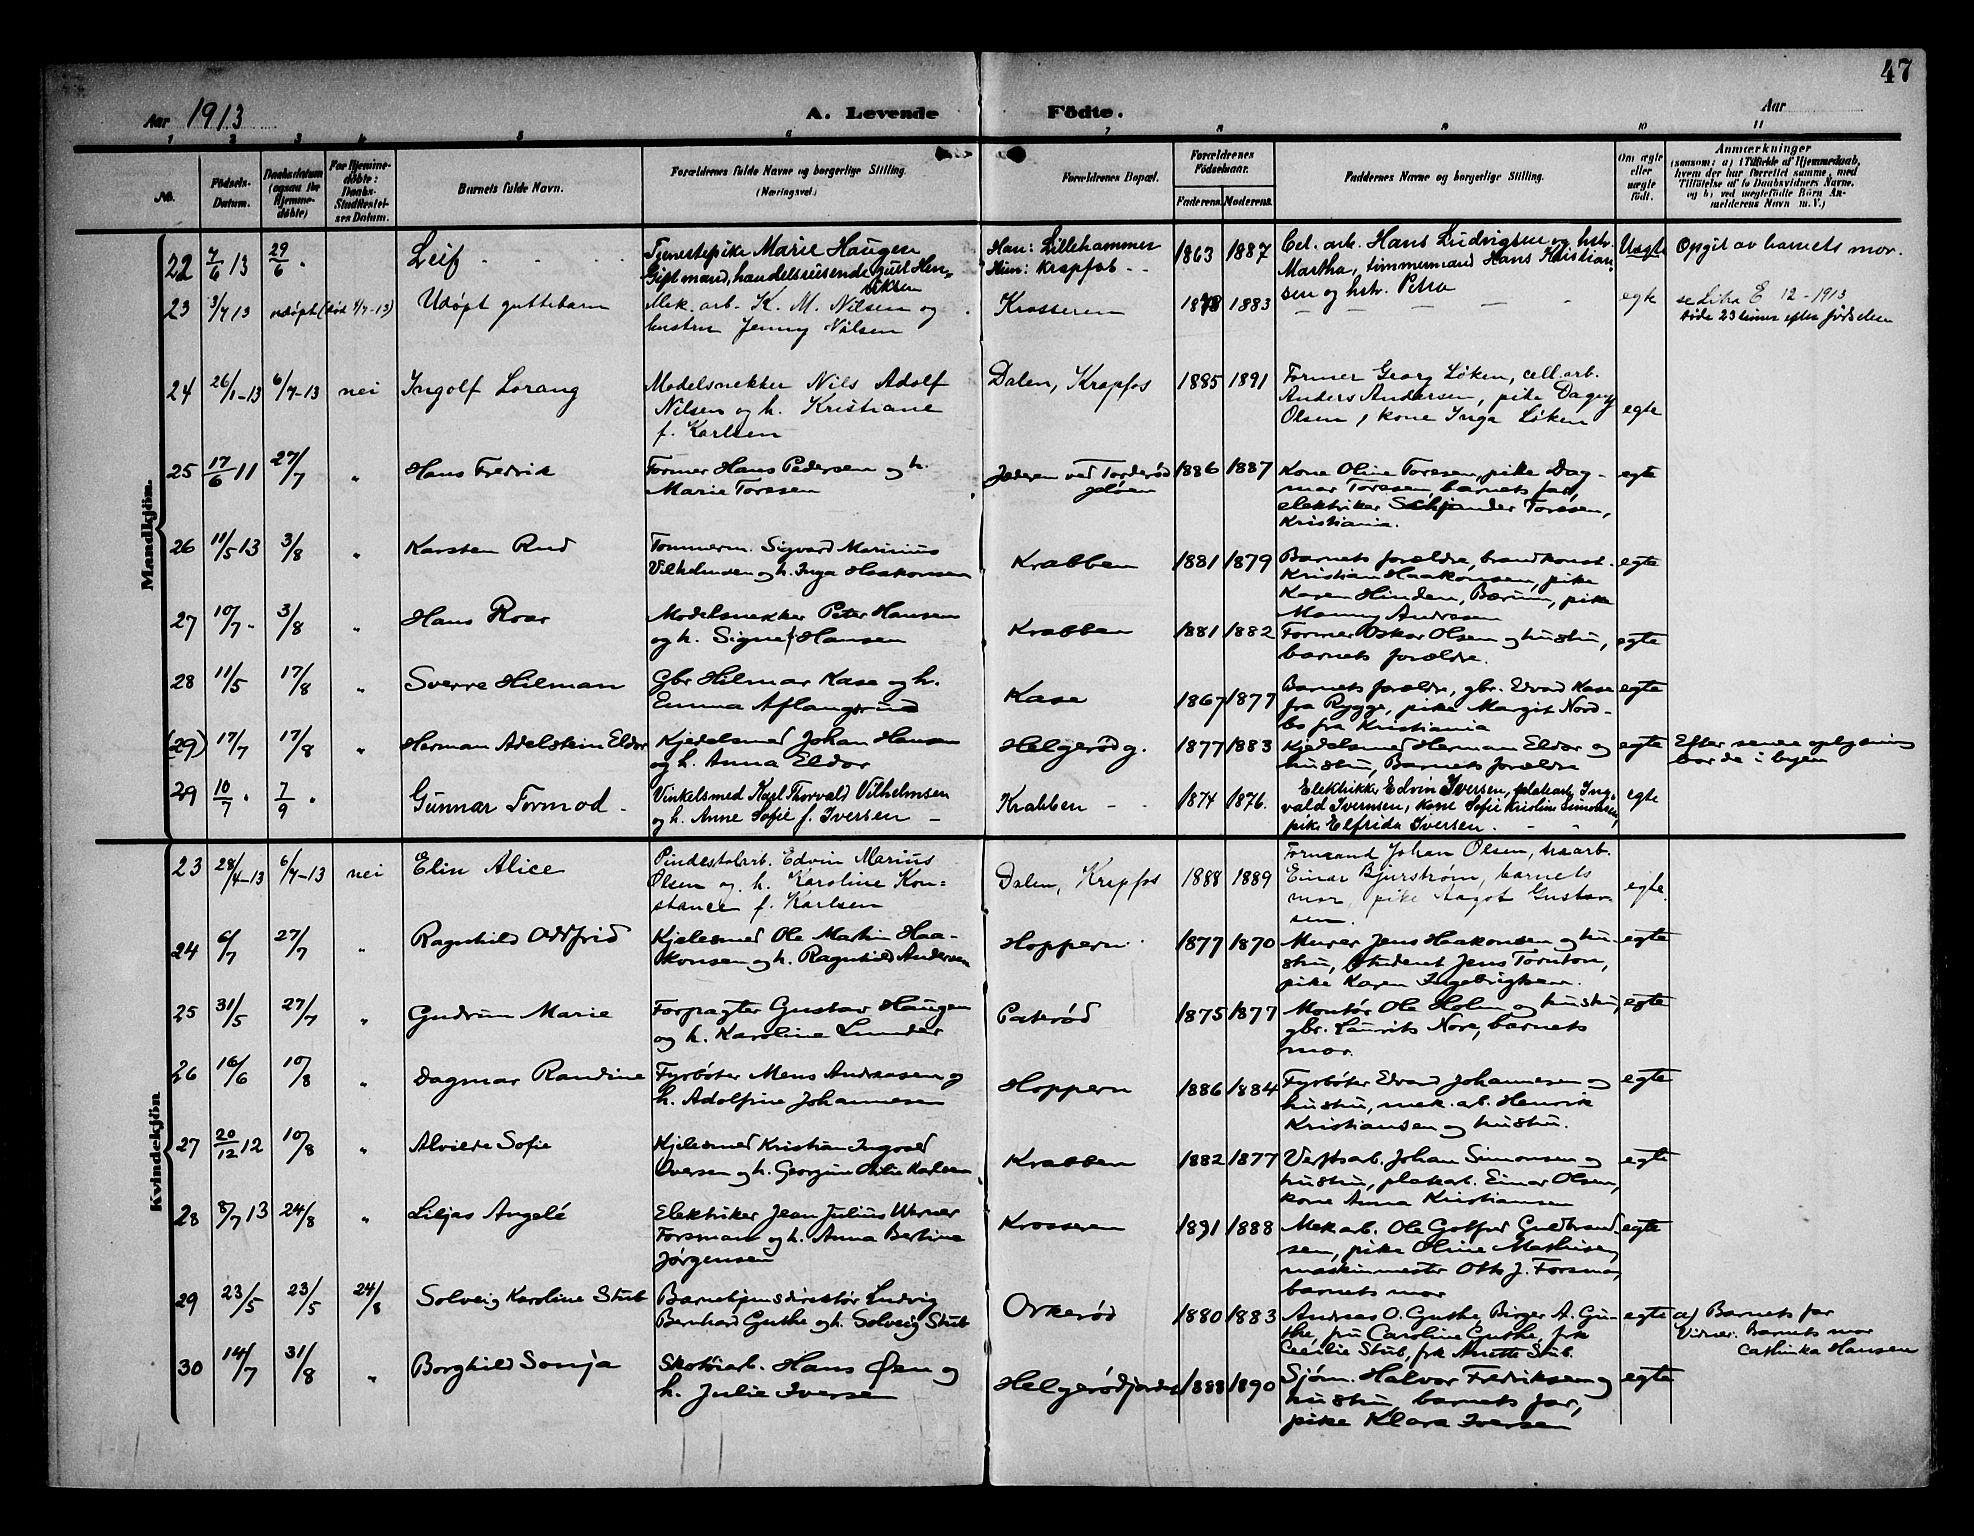 47
Aar 1913
A. Levende Födte.
Aar
1 2 3 4 5 6 7 8 9 10 11
No.
Födsels-Datum.
Daabsdatum (ogsaa for Hjemme-döbte)
For Hjemme-döbte: Daabs-Stadfestel-ses Datum.
Barnets fulde Navn.
Forældrenes fulde Navne og borgerlige Stilling. (Næringsvei.)
Forældrenes Bopæl.
Forældrenes Födselsaar.
Faderens. Moderens.
Faddernes Navne og borgerlige Stilling.
Om ægte eller uægte födt.
Anmærkninger
(saasom: a) i Tilfælde af Hjemmedaab, hvem der har forrettet samme, med Tilföielse af to Daabsvidners Navne, og b) ved uægtefödte Börn An-melderens Navn m. V.)
Mandkjön.
22 7/6 13 29/6 Leif
Tjenestepike Marie Haugen
Gift mand, handelsreisende Gust Hen-
riksen
Han: Lillehammer
Hun: Krapfos
1863 1887
Cel. arb. Hans Ludvigsen og hstr.
Martha, tømmermand Hans Kristian-
sen og hstr. Petra
Uegt Opgit av barnets mor.
23 3/7 13 udøpt (død 4/7-13) Udøpt guttebarn
Mek. arb. K. M. Nilsen og
hustru Jenny Nilsen
Krosseren 1878 1883 egte
se Litra E 12-1913
døde 23 timer efter fødselen
24 26/1-13 6/7-13 nei Ingolf Lorang
Modelsnekker Nils Adolf
Nilsen og h. Kristiane
f. Karlsen
Dalen, Krapfos 1885 1891
Former Georg Løken, cell. arb.
Anders Andersen, pike Dagny
Olsen, kone Inga Løken
egte
25 17/6 11 27/7 " Hans Fredrik
Former Hans Pedersen og h.
Marie Toresen
Jæderen ved Torderød
Jeløen
1886 1887
Kone Oline Toresen, pike Dag-
mar Toresen, barnets far,
elektriker Schjander Toresen,
Kristiania.
egte
26 11/5 13 3/8 " Karsten Rud
Tømmerm. Sigvard Marinius
Vilhelmsen og h. Inga Haakonsen
Krabben 1881 1879
Barnets forældre, brandkonst.
Kristian Haakonsen, pike
Karen Hinden, Bærum, pike
Manny Andresen
egte
27 10/7 3/8 " Hans Roar
Modelsnekker Peter Hansen
og h. Signe f Hansen
Krabben 1881 1882
Former Oskar Olsen og hustru,
barnets forældre.
egte
28 11/5 17/8 " Sverre Hilman
Gbr Hilmar Kase og h.
Emma Aflangsrud
Kase 1867 1877
Barnets forældre, gbr. Edvard Kase
fra Rygge, pike Margit Nord-
bo fra Kristiania
egte
(29) 17/7 17/8 " Herman Adelstein Eldor
Kjedelsmed Johan Hansen
og h. Anna Eldor
Helgerød g. 1877 1883
Kjedelsmed Herman Eldor og
hustru, Barnets forældre
egte
Efter senere oplysning
bor de i byen
29 10/7 7/9 Gunnar Tormod
Vinkelsmed Karl Thorvald Vilhelmsen
og h. Anne Sofie f. Iversen
Krabben 1874 1876.
Elektriker Edvin Iversen, platearb. Ing-
vald Ivernsen, kone Sofie Kristine Simonsen,
pike Elfrida Iversen.
egte
Kvindekjön
23 28/4-13 6/7-13 nei Elin Alice
Pindestolarb. Edvin Marius
Olsen og h. Karoline Kon=
stance f. Karlsen
Dalen, Krapfos 1888 1889
Formand Johan Olsen, træarb.
Einar Bjurstrøm, barnets
mor, pike Aagot Gustav-
sen.
egte.
24 6/7 27/7 " Ragnhild Oddfrid
Kjelesmed Ole Martin Haa-
konsen og h. Ragnhild Andersen
Hoppern 1877 1870
Murer Jens Haakonsen og hu-
stru, student Jens Tornton,
pike Karen Ingebrigtsen.
egte
25 31/5 27/7 " Gudrun Marie
Forpagter Gustav Haugen
og h. Karoline Lunder
Paterød 1875 1877
Montør Ole Holm og hustru,
gbr. Laurits Nore, barnets
mor.
egte
26 16/6 10/8 " Dagmar Randine
Fyrbøter Mens Andreasen og
h. Adolfine Johannesen
Hoppern 1886 1884
Fyrbøter Edvard Johannesen og
hustru, mek. arb. Henrik
Kristiansen og hustru.
egte
27 20/12 12 10/8 " Alvilde Sofie
Kjelesmed Kristian Ingvad
Iversen og h. Georgine Otilie Karlsen
Krabben 1882 1877
Verftsarb. Johan Simonsen og
hustru, platearb. Einar Olsen,
kone Anna Kristiansen
egte
28 8/7 13 24/8 " Liljas Angelé
Elektriker Jean Julius Werner
Forsman og h. Anna Bertine
Jørgensen
Krosseren 1891 1888
Mek arb. Ole Gotfred Guldbrand-
sen, pike Oline Mathisen,
maskinmester Otto J. Forsman,
barnets mor
egte
29 23/5 23/5 24/8 Solveig Karoline Stub
Barnehjemsdirektør Ludvig
Bernhard Guthe og h. Solveig Stub
Orkerød 1880 1883
Andreas O. Guthe, Birger A. Gu-
the, fru Caroline Guthe, frk
Cecilie Stub, frk Anette Stub.
egte
a) Barnets far
Vidner: Barnets mor
Cathinka Hansen
30 14/7 31/8 " Borghild Sonja
Skotøiarb. Hans Øen og
h. Julie Iversen
Helgerødjordet 1888 1890
Sjøm. Halvor Fredriksen og
hustru, barnets far,
pike Klara Iversen
egte